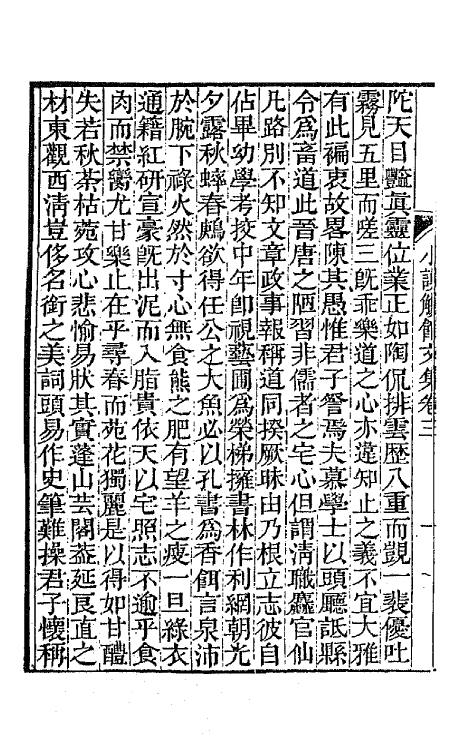 小謨觴館文集卷三 一
陀天目豔眞靈位業正如陶侃排雲歷八重而覬一裴優吐
霧見五里而嗟三旣乖樂道之心亦違知止之義不宜大雅
有此褊衷故畧陳其愚惟君子詧焉夫慕學士以頭廳詆縣
令爲畜道此晉唐之陋習非儒者之宅心但謂淸職麤官仙
凡路別不知文章政事報稱道同揆厥昧由乃根立志彼自
佔畢幼學考挍中年卽視藝圃爲榮梯擁書林作利網朝光
夕露秋蟀春鷃欲得任公之大魚必以孔書爲香餌言泉沛
於腕下祿火然於寸心無食熊之肥有望羊之瘦一旦綠衣
通籍紅硏宣豪旣出泥而入脂貴依天以宅照志不逾乎食
肉而禁臠尤甘樂止在乎尋春而苑花獨麗是以得如甘醴
失若秋荼枯菀攻心悲愉易狀其實蓬山芸閣葢延艮直之
材東觀西淸豈侈名銜之美詞頭易作史筆難操君子懷稱